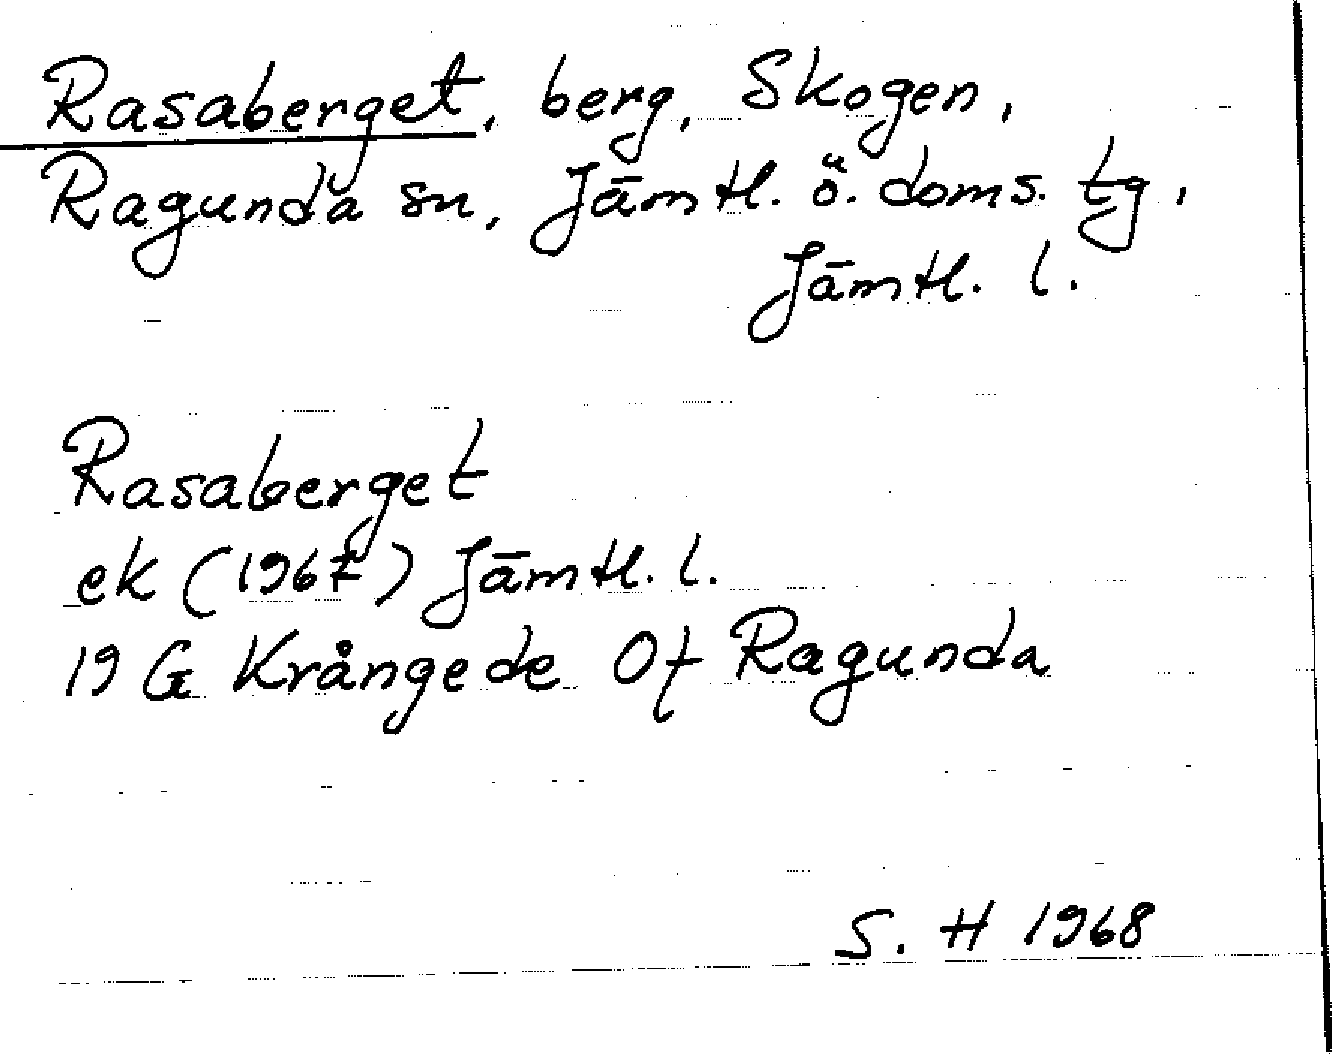 Rasaberget, berg, Skogen,
Ragunda sn, Jämtl. ö. doms. tg,
Jämtl. l.
Rasaberget
ek (1967) Jämtl. l.
19 G Krångede Of Ragunda
S. H 1968